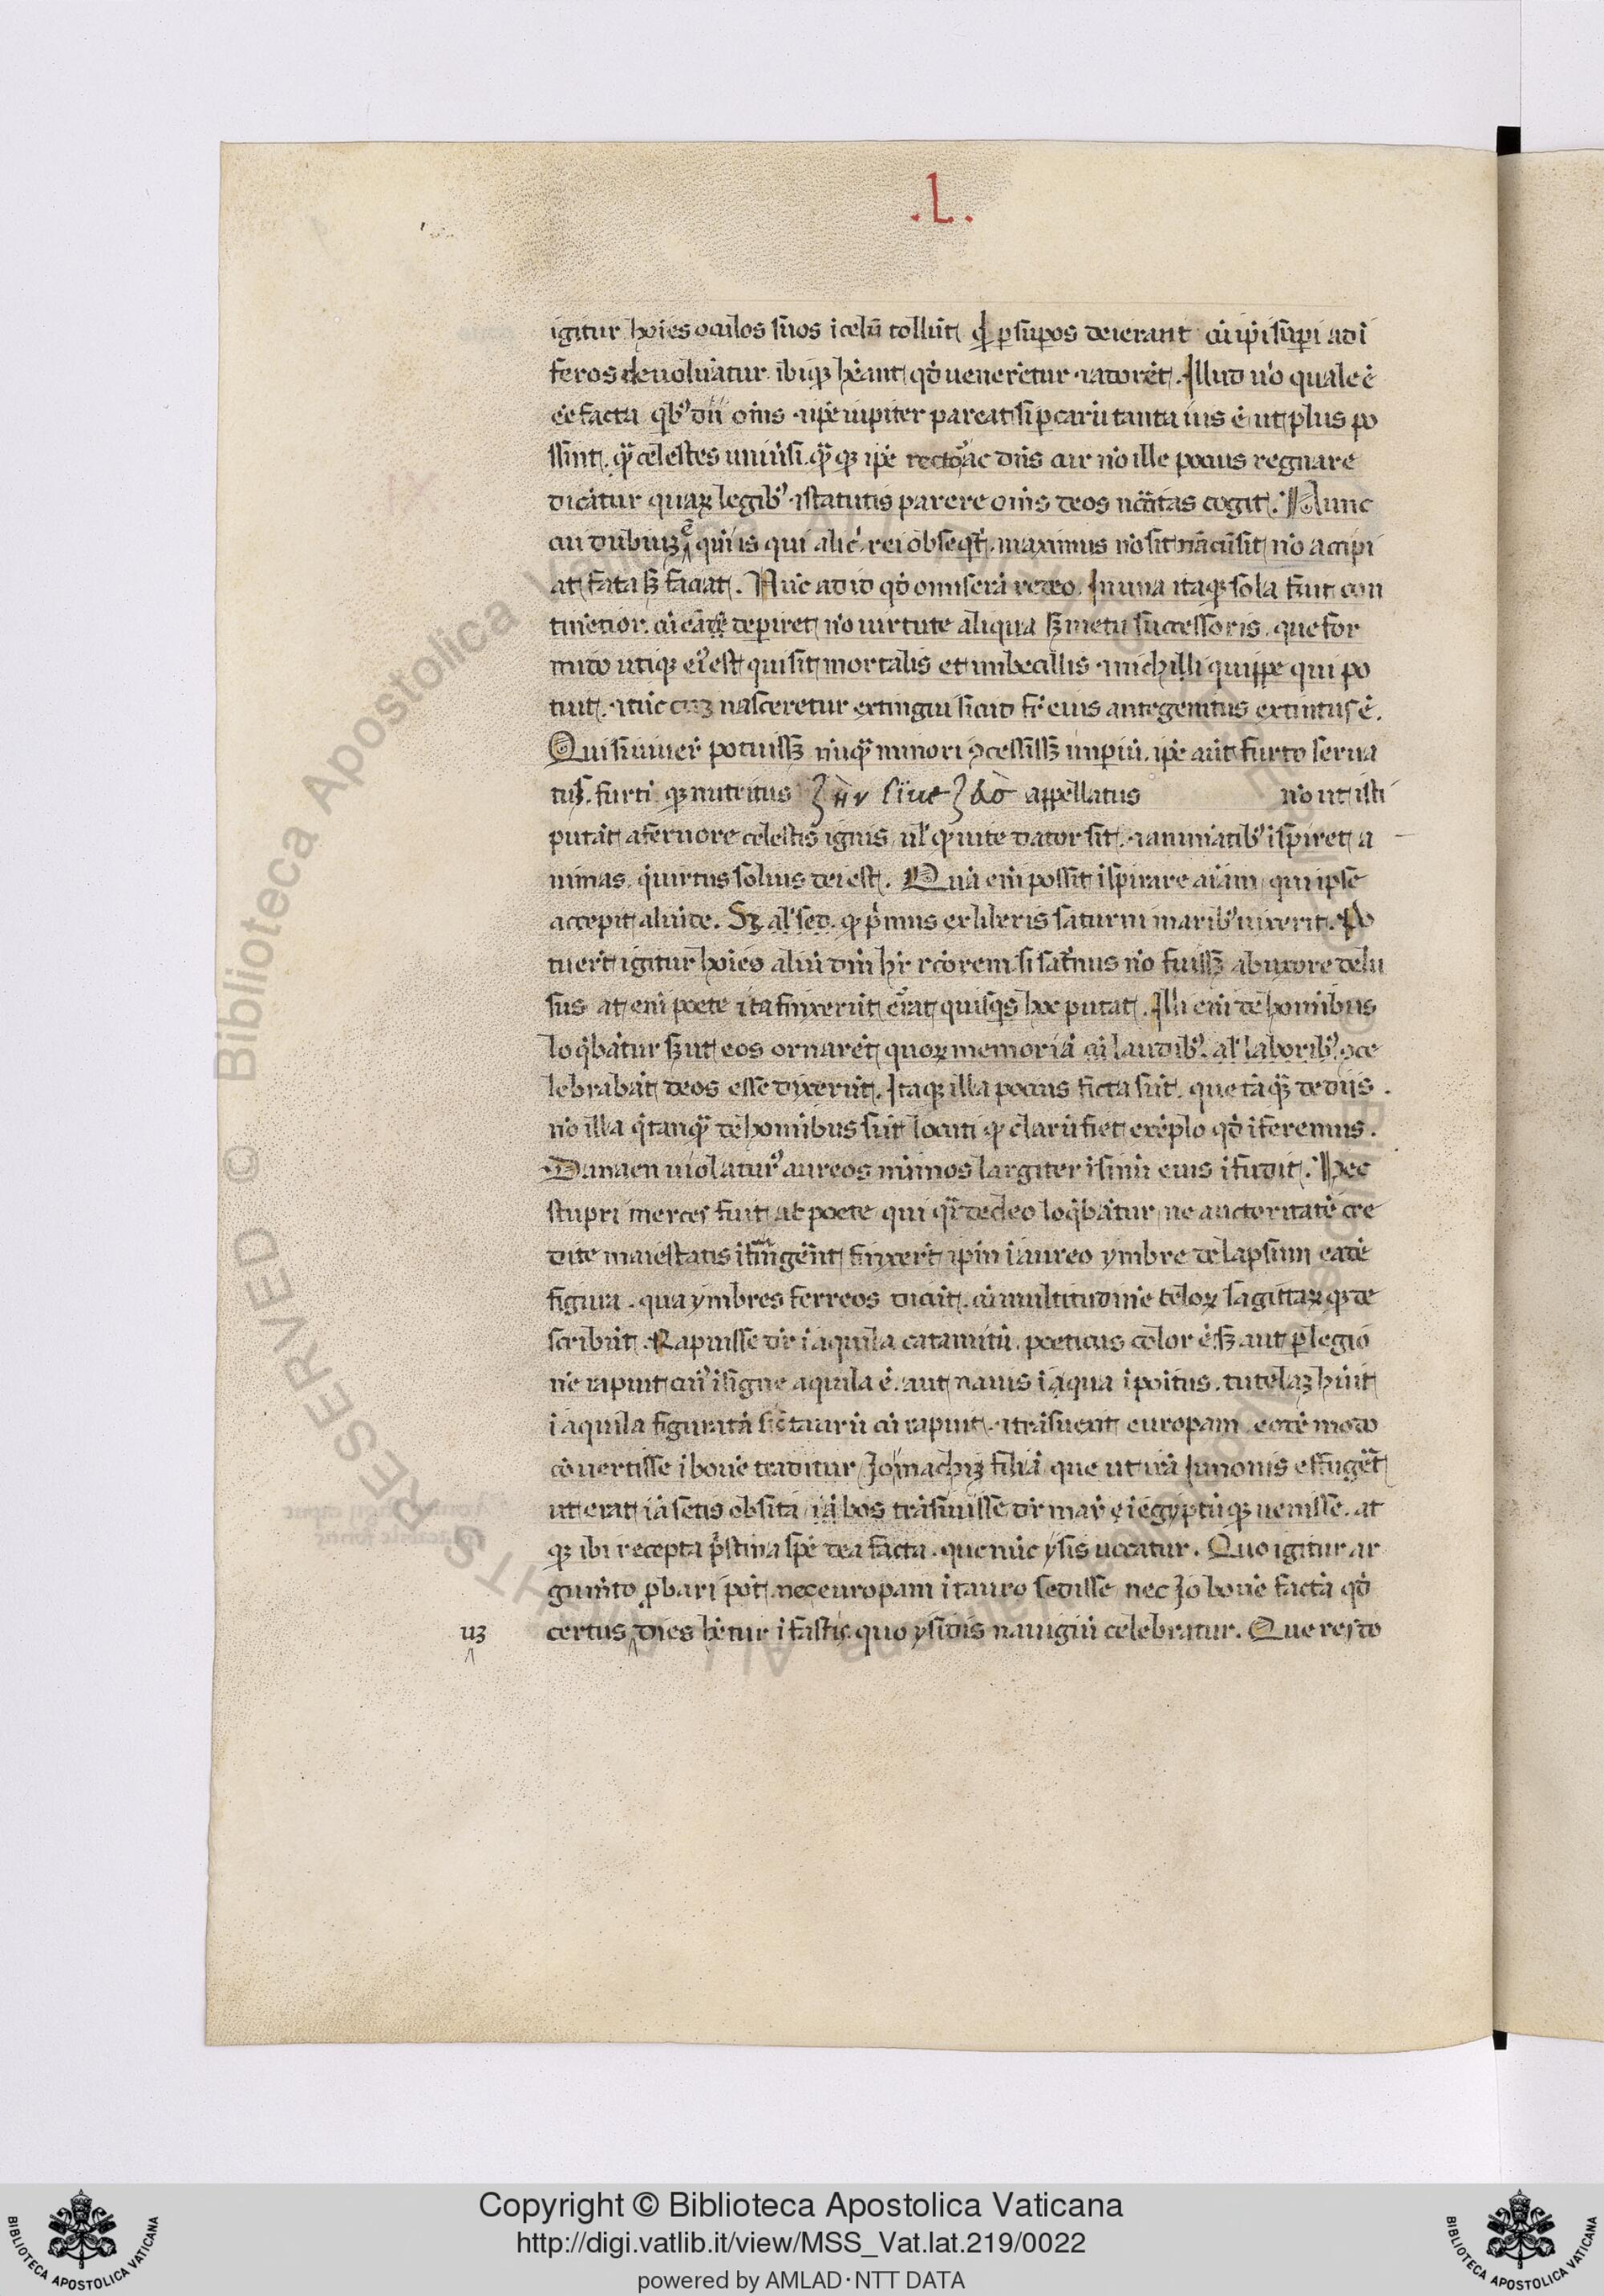 .L.
igitur hoi̅es oculos suos i celu̅ tollu̅t qd̕ p̲ sup̲os deierant cu̅ ip̅i sup̲i ad i̅
feros deuolua̅tur ibiqȝ hea̅nt qd̕ uenere̅tur ⁊ adore̅t. Illud uo̕ quale e̅
ee̅ facta qbꝰ dii om̅s ⁊ ip̅e iupiter pareat si p̲carū tanta uis e̅ ut plus po
ssint q̅ celestes uniu̕si q̅ qȝ ip̅e rector ac dn̅s cur no̅ ille pocius regnare
dica̅tur quaꝝ legibꝰ ⁊ statutis parere om̅s deos nc̅citas cogit. Nunc
cui dubiuȝ e̅ qui̅ is qui alic̕ rei obseqt̕ maximus no̅ sit na̅ cu̅ sit no̅ accipi
at fata sȝ faciat. Nu̅c ad id qd̕ omisera̅ redeo. In una itaqȝ sola fuit con
tine̅tior cu̅ ea̅ de̅ depiret no̅ uirtute aliqua sȝ metu successoris que for
mido utiqȝ ei̕ est qui sit mortalis et imbecillis ⁊ nichili quippe qui po
tuit ⁊ tu̅c cuȝ nasceretur extingui sicud fr̅ eius antegenitus extintus e̅.
Qui si uiuer̕ potuissȝ nu̅q̅ minori ꝯcessissȝ imp̲iu̅ ip̅e aut̅ furto serua
tus furti qȝ nutritus ζην siue ζαο appellatus no̅ ut isti
puta̅t a feruore celestis ignis ul̕ q̕ uite dator sit ⁊ animatibꝰ ispiret a
nimas q̕ uirtus solius dei est. Qua̅ eni̅ possit ispirare ai̅am qui ipse
accepit aliu̅de. Sȝ al̕ sed q̕ p̕mus ex liberis saturni maribꝰ uixerit. Po
tuer̅t igitur hoi̅es aliu̅ dm̅ hr̅e rc̅orem si sat̕nus no̅ fuissȝ ab uxore delu
sus at eni̅ poete ita finxeru̅t er̕at quisqs hoc putat. Illi eni̅ de homi̅bus
loqba̅tur sȝ ut eos ornare̅t quoꝝ memoria̅ cu̅ laudibꝰ al̕ laboribꝰ ꝯce
lebraba̅t deos esse dixeru̅t. Itaqȝ illa pocius ficta su̅t que ta̅q̅ de diis
no̅ illa q̕ tanq̅ de homi̅bus su̅t locuti q̕ claru̅ fiet exe̅plo qd̕ i̅feremus.
Danaen uiolaturꝰ aureos nu̅mos largiter i sinu̅ eius i̅fudit. Hec
stupri merces fuit at poete qui q̅i de deo loqba̅tur ne auctoritate̅ cre
dite maiestatis i̅fri̅ger̅nt finxer̅t ip̅m i aureo ymbre delapsum eade̅
figura qua ymbres ferreos dicu̅t cu̅ multitudine̅ teloꝝ sagittaꝝ qȝ de
scribu̅t. Rapuisse dr̅ i aquila catamitu̅ poeticus color e̅ sȝ aut p̲ legio
ne̅ rapuit cui̕ isigne aquila e̅ aut nauis i qua i̅poitus tutelaȝ h̅uit
i aquila figurata̅ sic̅ taurū cu̅ rapuit ⁊ tra̅suexit europam eode̅ modo
co̅uertisse i boue̅ traditur Io inachiȝ filia̅ que ut ira̅ Iunonis effuger̅t
ut erat ia̅ setis obsita ia̅ bos tra̅snasse dr̅ mar̅e i egyptu̅qȝ uenisse at
qȝ ibi recepta p̕stina sp̅e dea facta que nu̅c ysis uocatur. Quo igitur ar
gum̅to p̲bari pot̅ nec europam i tauro sedisse nec Io boue̅ facta̅ qd̕
uȝ certus dies h̅etur i fastis quo ysidis nauigiu̅ celebratur. Que res do
Copyright © Biblioteca Apostolica Vaticana
http://digi.vatlib.it/view/MSS_Vat.lat.219/0022
powered by AMLAD·NTT DATA
BIBLIOTECA APOSTOLICA VATICANA
BIBLIOTECA APOSTOLICA VATICANA